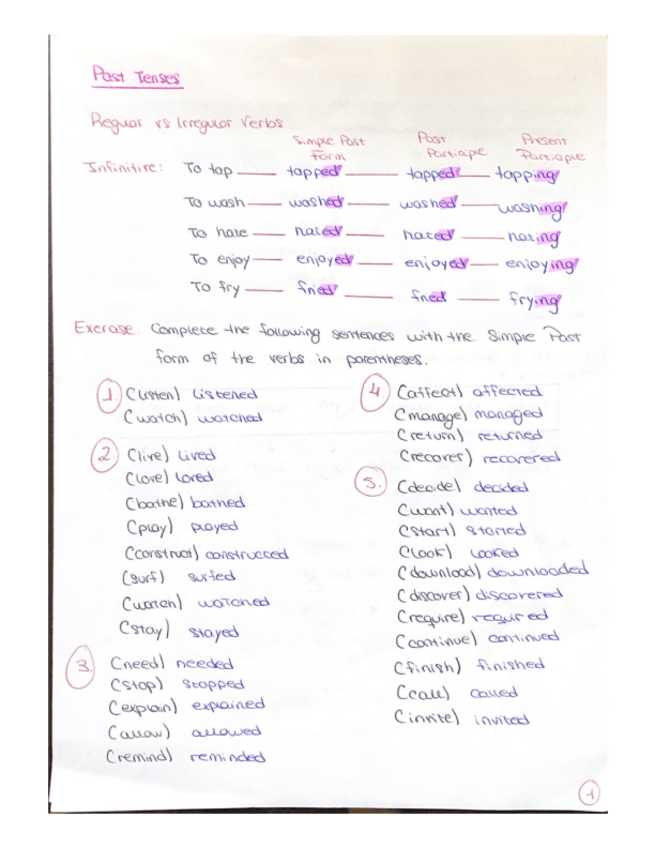 Past Tenses
Reguar vs Irregular Verbs.
Simple Past Form
Past Participle
Present Participle
Infinitive: To tap — tapped — tapped — tapping
To wash — washed — washed — washing
To hate — hated — hated — hating
To enjoy — enjoyed — enjoyed — enjoying
To fry — fried — fried — frying
Exercise. Complete the following sentences with the Simple Past
form of the verbs in parentheses.
1. (listen) listened
(watch) watched
2. (live) lived
(love) loved
(bathe) bathed
(play) played
(construct) constructed
(surf) surfed
(watch) watched
(stay) stayed
3. (need) needed
(stop) stopped
(explain) explained
(allow) allowed
(remind) reminded
4. (affect) affected
(manage) managed
(return) returned
(recover) recovered
5. (decide) decided
(want) wanted
(start) started
(look) looked
(download) downloaded
(discover) discovered
(require) required
(continue) continued
(finish) finished
(call) called
(invite) invited
1